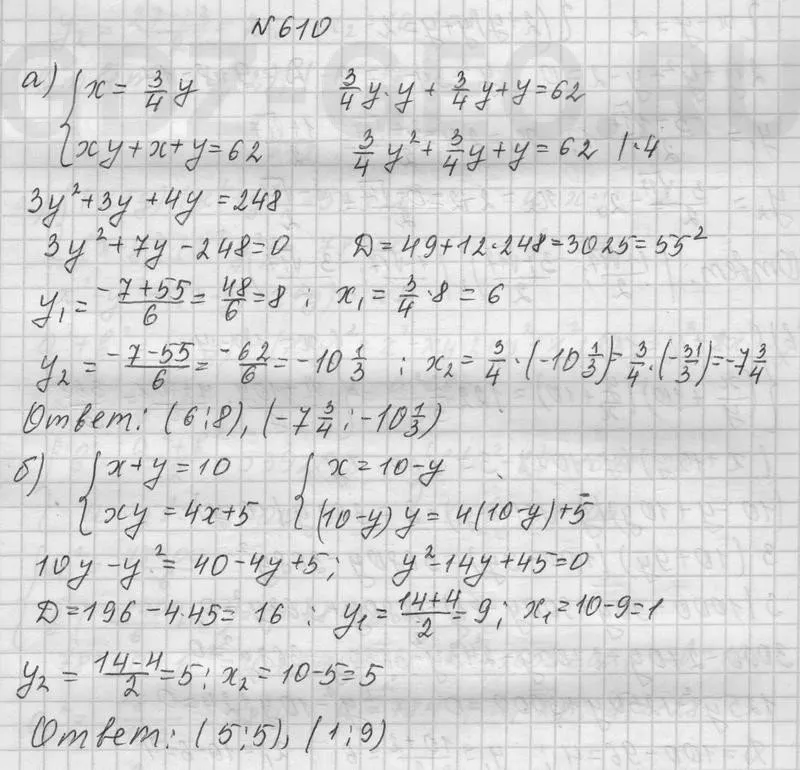 №610
а) { x = 3/4 y      3/4 y·y + 3/4 y + y = 62
{ xy + x + y = 62      3/4 y² + 3/4 y + y = 62 |·4
3y² + 3y + 4y = 248
3y² + 7y - 248 = 0      D = 49 + 12·248 = 3025 = 55²
y₁ = (-7+55)/6 = 48/6 = 8 ; x₁ = 3/4·8 = 6
y₂ = (-7-55)/6 = -62/6 = -10 1/3 ; x₂ = 3/4·(-10 1/3) = 3/4·(-31/3) = -7 3/4
Ответ: (6;8), (-7 3/4; -10 1/3)
б) { x + y = 10      { x = 10 - y
{ xy = 4x + 5      { (10-y)y = 4(10-y)+5
10y - y² = 40 - 4y + 5 ;      y² - 14y + 45 = 0
D = 196 - 4·45 = 16 ; y₁ = (14+4)/2 = 9 ; x₁ = 10-9 = 1
y₂ = (14-4)/2 = 5 ; x₂ = 10-5 = 5
Ответ: (5;5), (1;9)